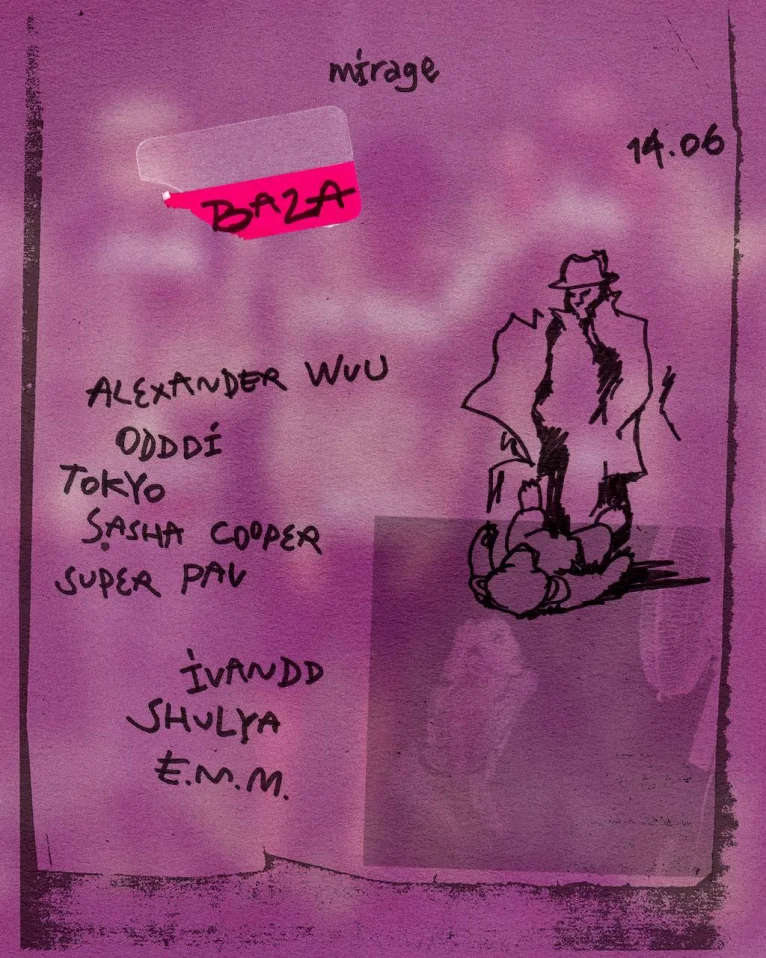 mirage
14.06
BAZA
ALEXANDER WUU
ODDDI
TOKYO
SASHA COOPER
SUPER PAU
IVANDD
SHULYA
E.M.M.